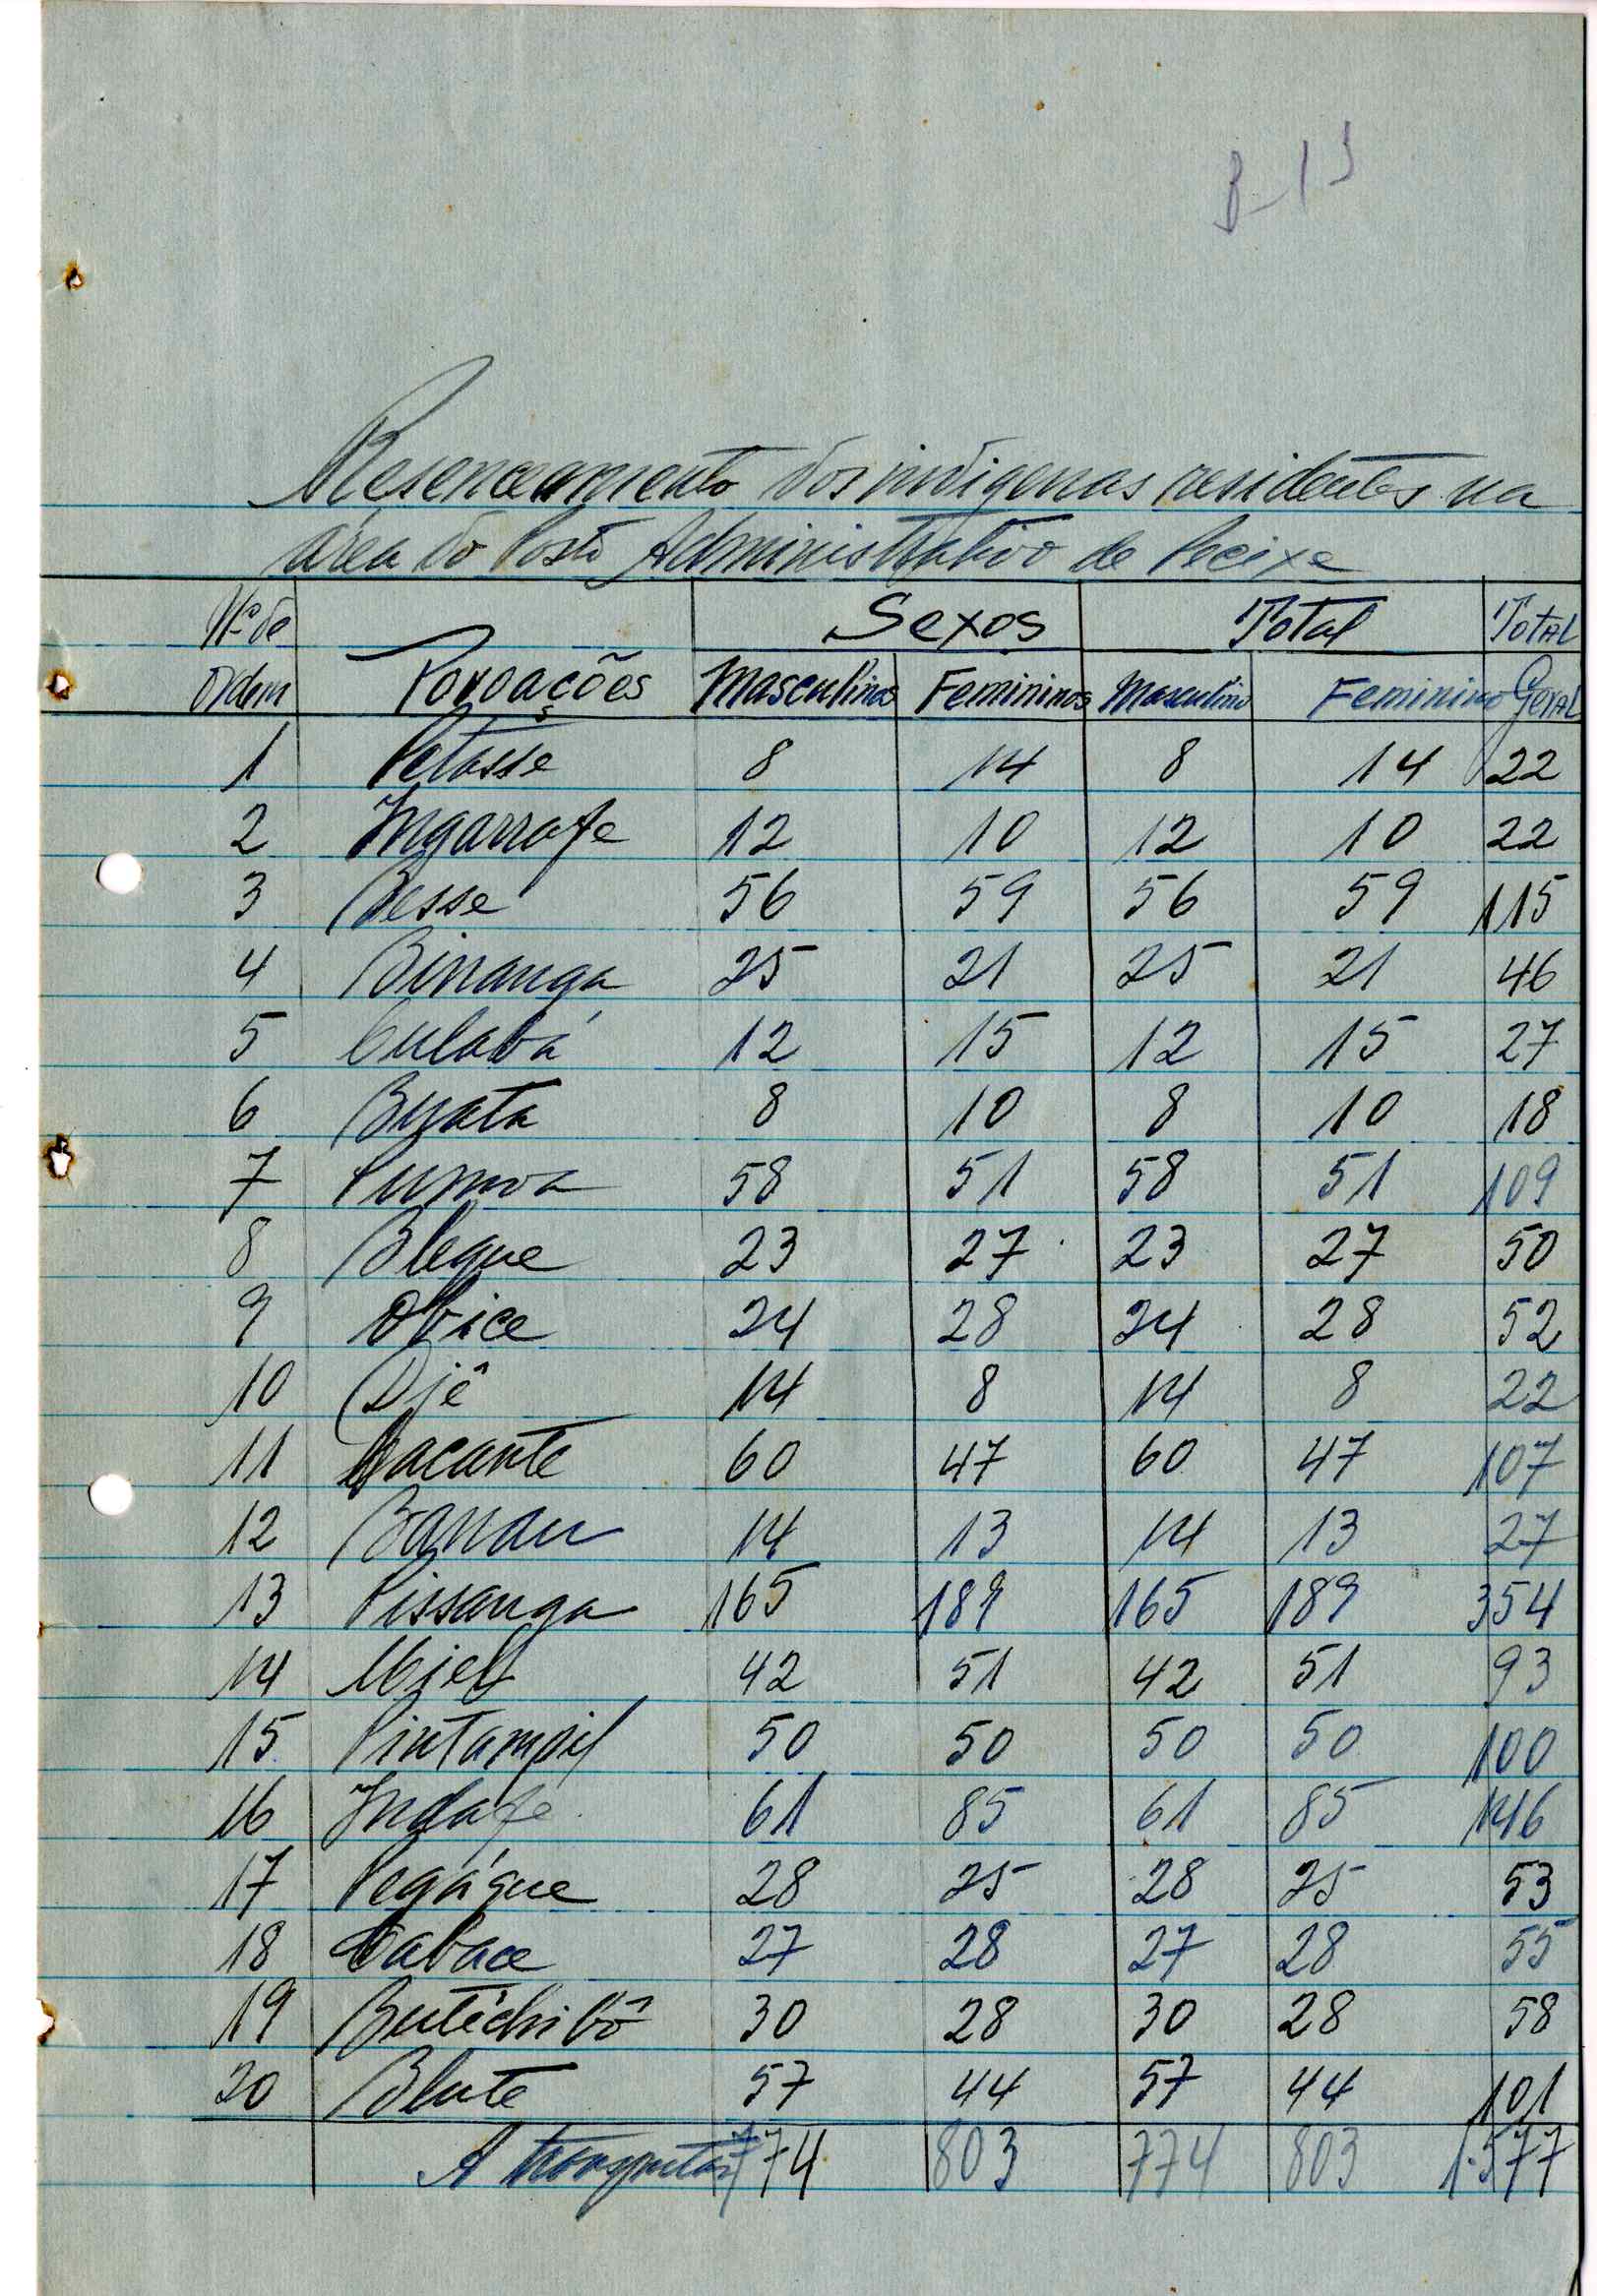 B-13
Resenceamento dos indigenas residentes na
área do Posto Administrativo de Pecixe
Nº de Sexos Total Total
Ordem Povoações Masculinos Femininos Masculino Feminino Geral
1 Petasse 8 14 8 14 22
2 Ingarrafe 12 10 12 10 22
3 Besse 56 59 56 59 115
4 Binanga 25 21 25 21 46
5 Culabá 12 15 12 15 27
6 8 10 8 10 18
7 58 51 58 51 109
8 Bleque 23 27 23 27 50
9 24 28 24 28 52
10 Djê 14 8 14 8 22
11 60 47 60 47 107
12 14 13 14 13 27
13 Pissanga 165 189 165 189 354
14 42 51 42 51 93
15 Pintampil 50 50 50 50 100
16 Indafe 61 85 61 85 146
17 Pegágue 28 25 28 25 53
18 Cabace 27 28 27 28 55
19 Butêchibô 30 28 30 28 58
20 57 44 57 44 101
A 774 803 774 803 1.577